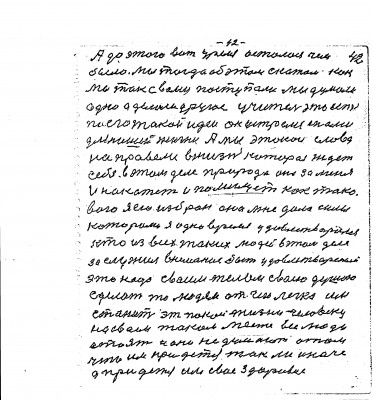 - 42 -
А до этого вот время осталося чем 42
было. Мы тогда об этом сказали. как
мы так с вами поступали мы думали
одно а делали другое учитель это есть
после такой идеи он
жизни А мы этакой слова
направели в жизнь которая ждет
себя. в этом деле природа она за меня
и накажет и помилует как тако
вого я ею избран она мне дала силы
которыми я одно время удовлетворялся
из всех таких людей в этом деле
заслужил внимание быть удовлетворенной
это надо своим телом своею душою
сделать то людям от чего легко им
станит эт такой жизни человеку
на своем таком месте все люди
стоят и они не думают о том
что им придется так или иначе
а придется им свое здоровие